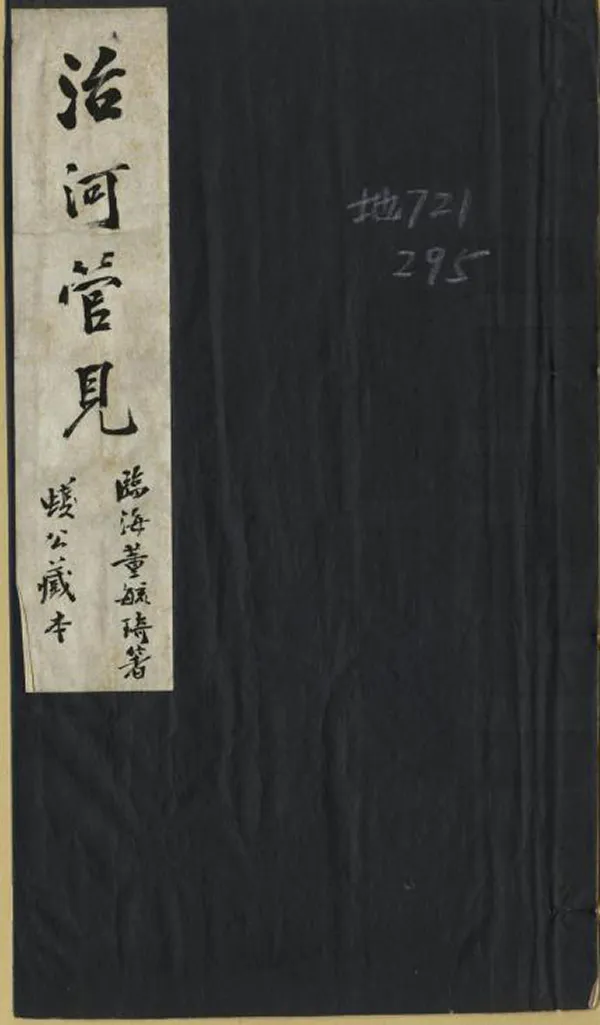 治河管見
臨海董毓琦著
蝬公藏本
地721
295